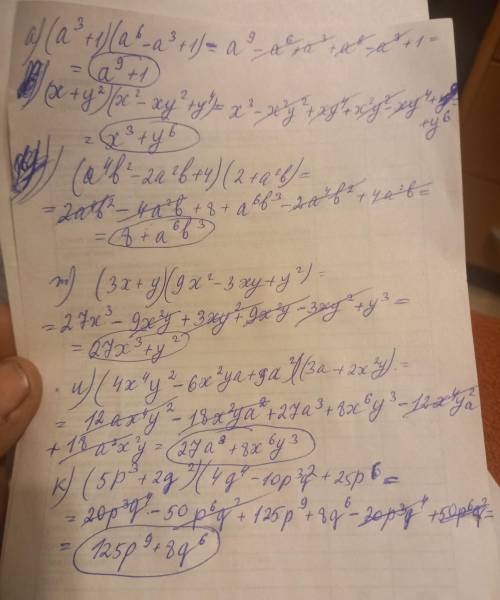 а) (a³+1)(a⁶-a³+1)= a⁹-a⁶+a³+a⁶-a³+1=
= a⁹+1
(x+y²)(x²-xy²+y⁴)= x³-x²y²+xy⁴+x²y²-xy⁴+
+y⁶
= x³+y⁶
(a⁴b²-2a²b+4)(2+a²b)=
= 2a⁴b²-4a²b+8+a⁶b³-2a⁴b²+4a²b=
= 8+a⁶b³
ж) (3x+y)(9x²-3xy+y²)=
= 27x³-9x²y+3xy²+9x²y-3xy²+y³=
= 27x³+y²
и) (4x⁴y²-6x²ya+9a²)(3a+2x²y)=
= 12ax⁴y²-18x²ya²+27a³+8x⁶y³-12x⁴y²a
+18a²x²y= 27a³+8x⁶y³
к) (5p³+2q²)(4q⁴-10p³q²+25p⁶=
= 20p³q⁴-50p⁶q²+125p⁹+8q⁶-20p³q⁴+50p⁶q²=
= 125p⁹+8q⁶